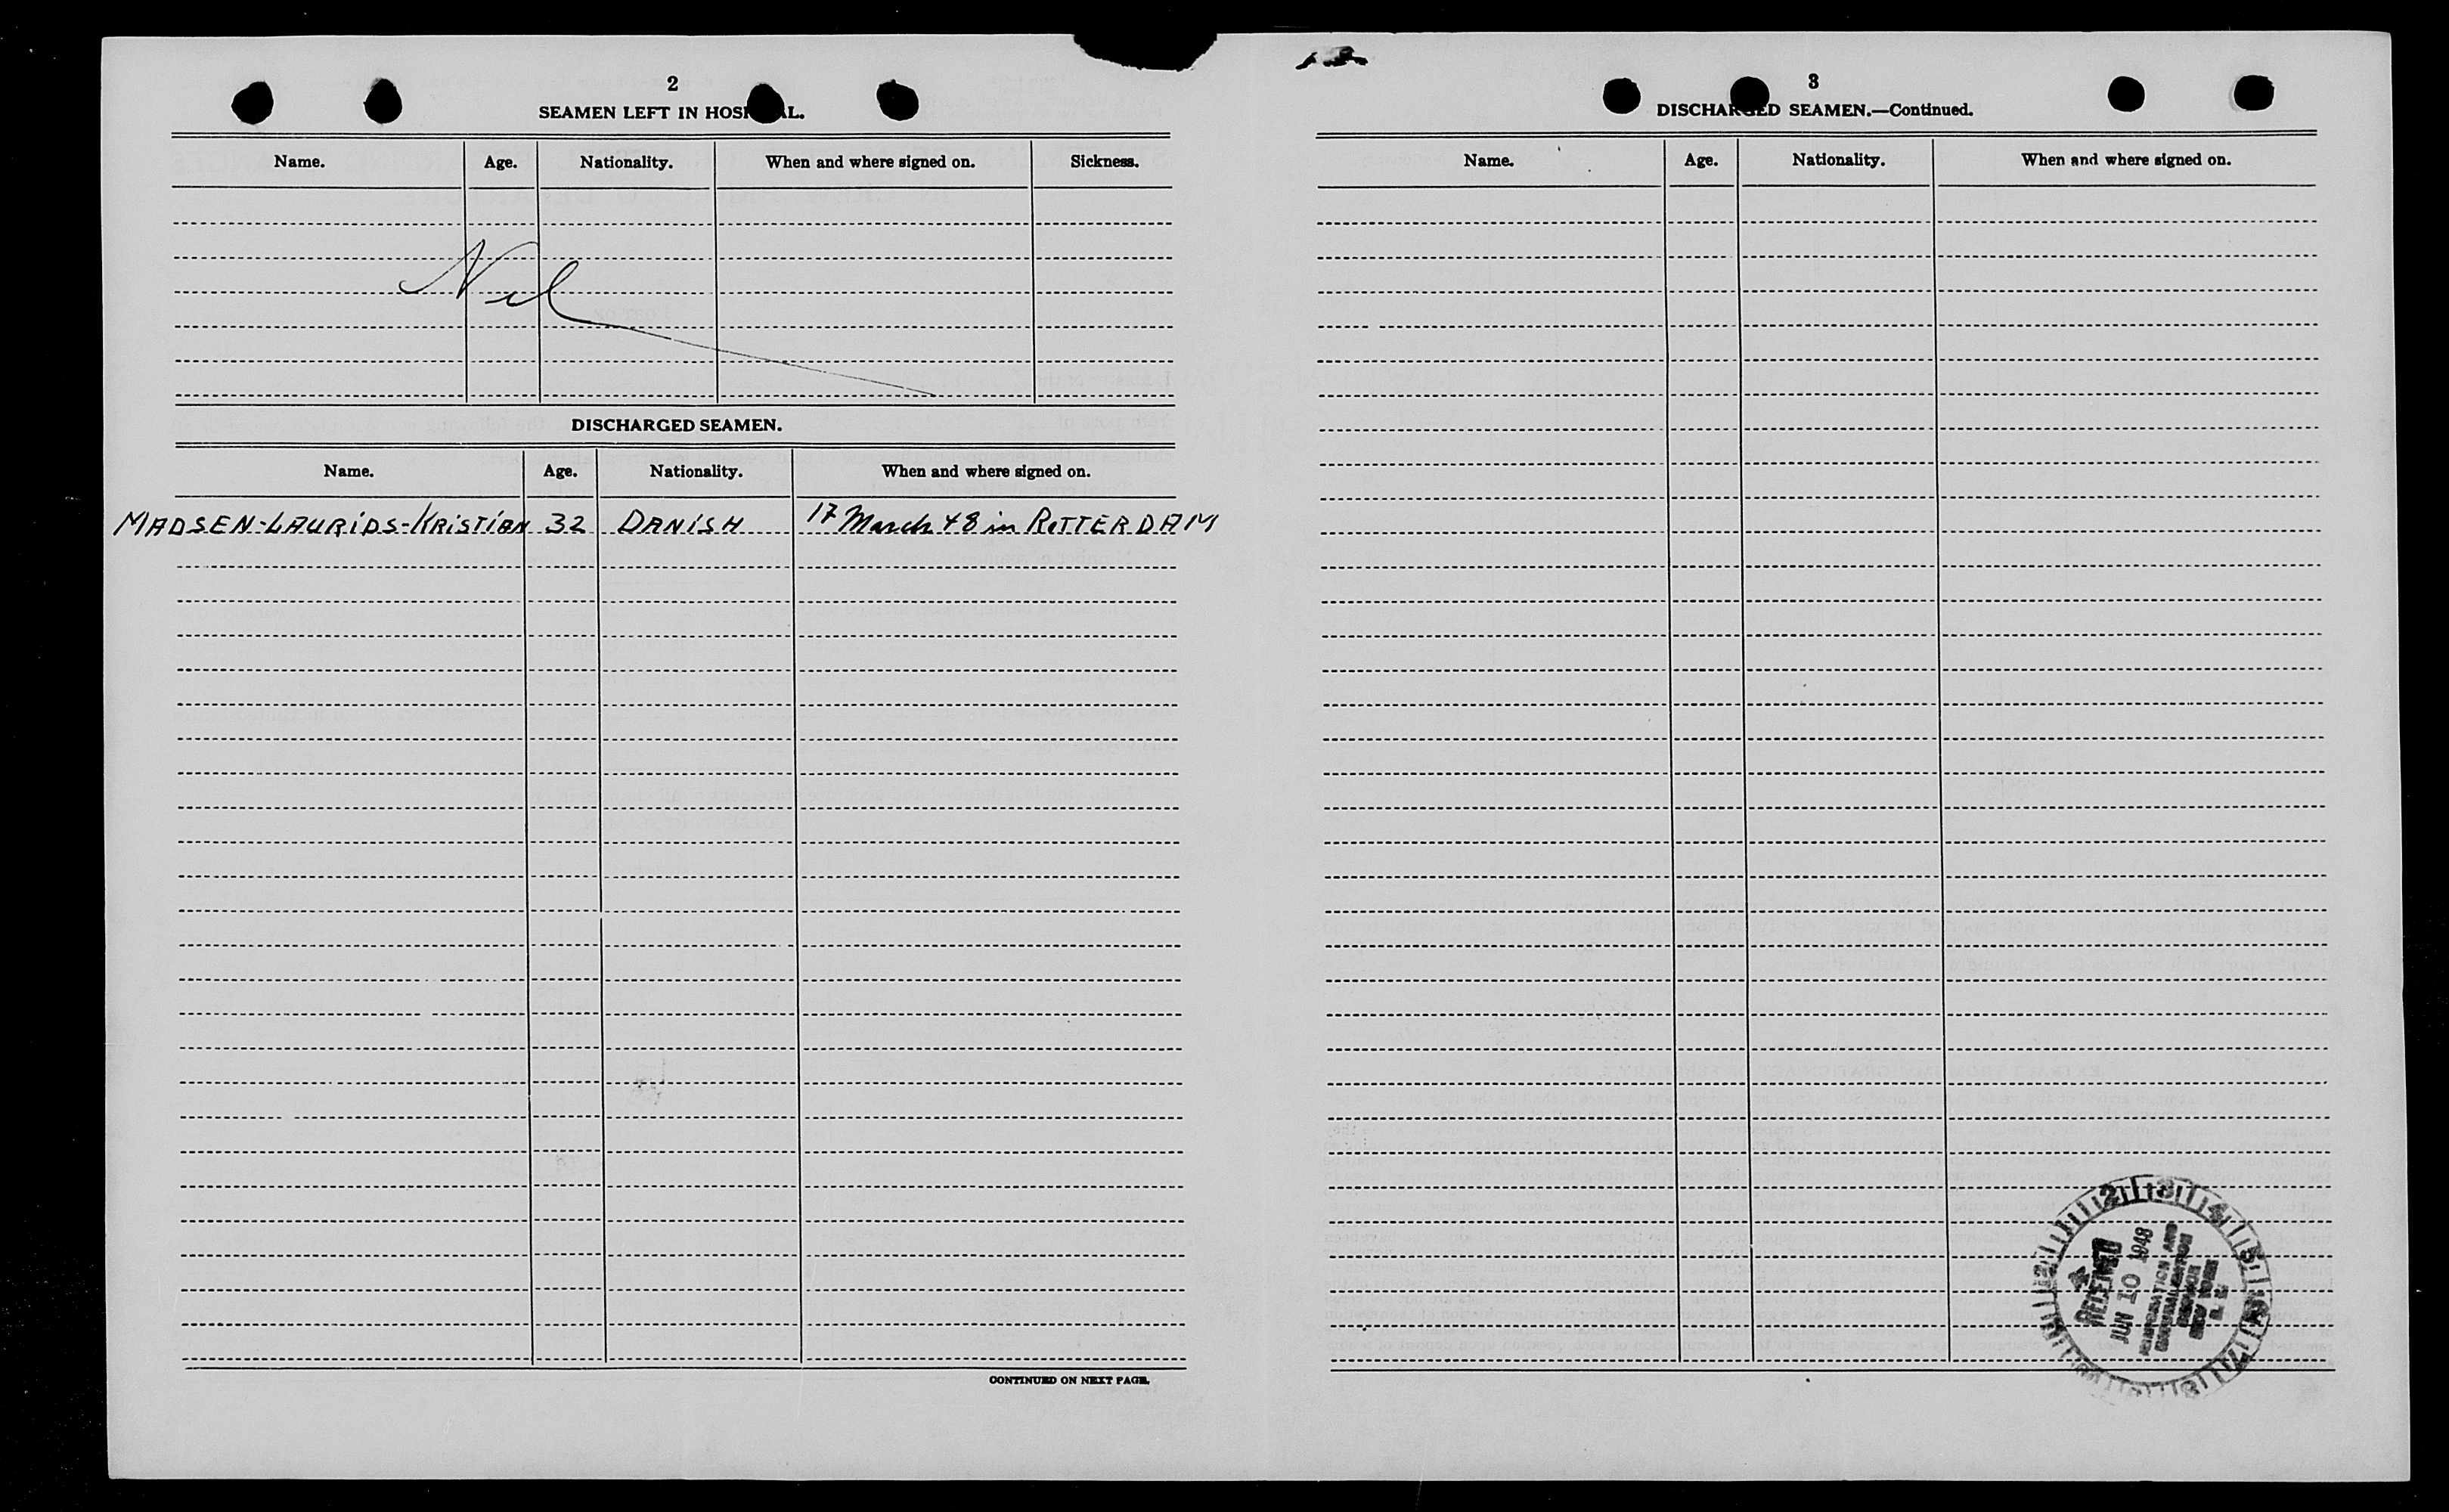 2
SEAMEN LEFT IN HOSPITAL.
Name. Age. Nationality. When and where signed on. Sickness.
Nil
DISCHARGED SEAMEN.
Name. Age. Nationality. When and where signed on.
MADSEN-LAURIDS-KRISTIAN 32 DANISH 17 March 48 in RoTTERDAM
CONTINUED ON NEXT PAGE.
3
DISCHARGED SEAMEN.—Continued.
Name. Age. Nationality. When and where signed on.
RECEIVED
JUN 10 1948
IMMIGRATION AND
NATURALIZATION
SERVICE
NEW YORK